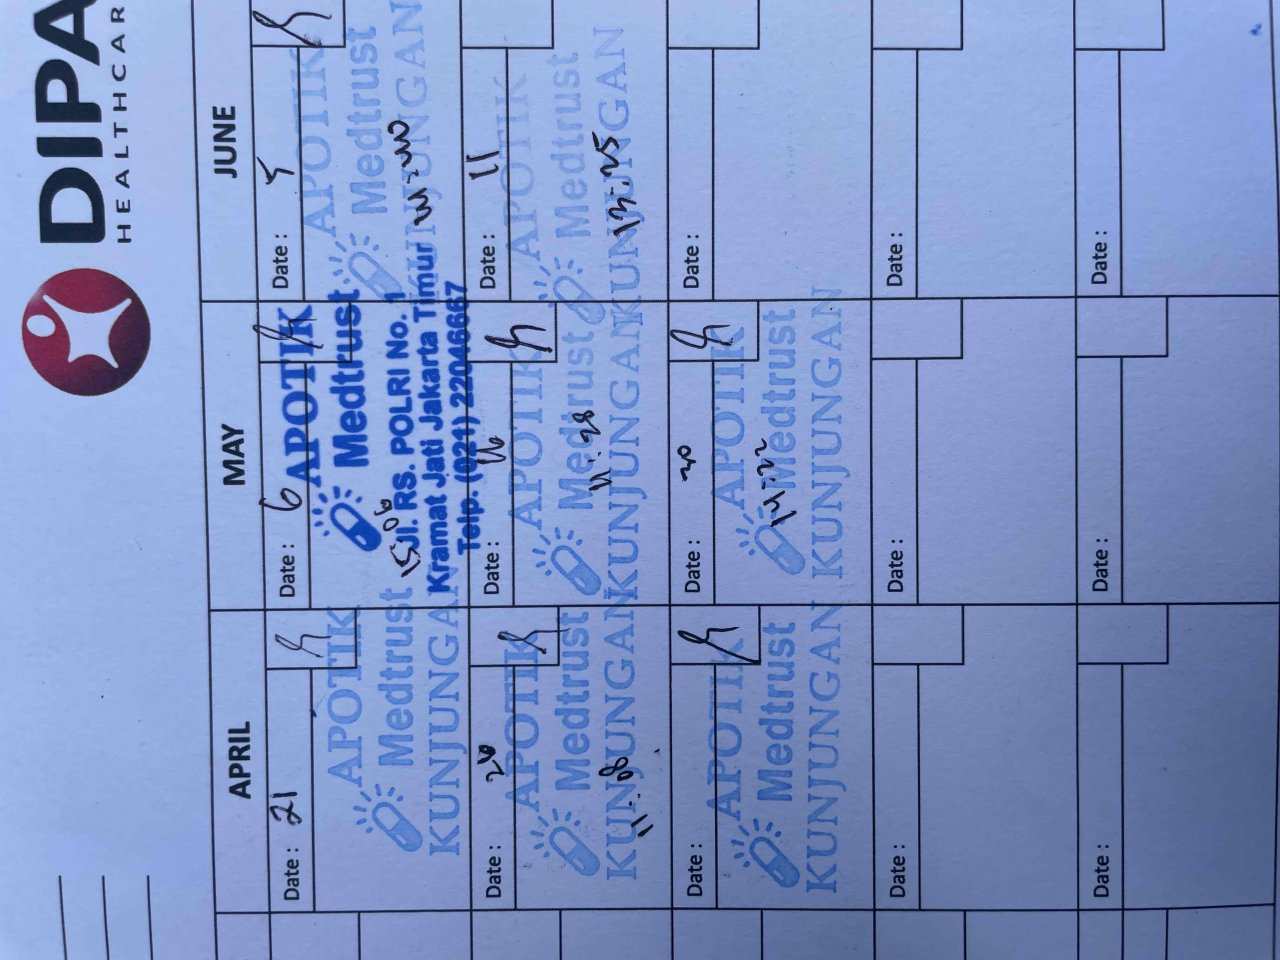 DIPA
HEALTHCAR
APRIL
MAY
JUNE
Date : 21
APOTIK
Medtrust
KUNJUNGAN
Date : 6
APOTIK
Medtrust
Jl. RS. POLRI No. 1
Kramat Jati Jakarta Timur
Telp. (021) 22046667
15:06
Date : 5
APOTIK
Medtrust
KUNJUNGAN
Date :
APOTIK
Medtrust
KUNJUNGAN
11:08
Date :
APOTIK
Medtrust
KUNJUNGAN
11:28
Date : 11
APOTIK
Medtrust
KUNJUNGAN
13:25
Date :
APOTIK
Medtrust
KUNJUNGAN
Date : 20
APOTIK
Medtrust
KUNJUNGAN
14:22
Date :
Date :
Date :
Date :
Date :
Date :
Date :